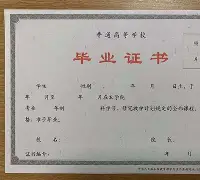 普通高等学校
毕业证书
学生 性别 , 年 月 日生, 于
年 月至 年 月在本学院
专业 年制 科学习, 修完教学计划规定的全部课程,
准予毕业。
校 名: 院 长:
证书编号: 年 月 日
月